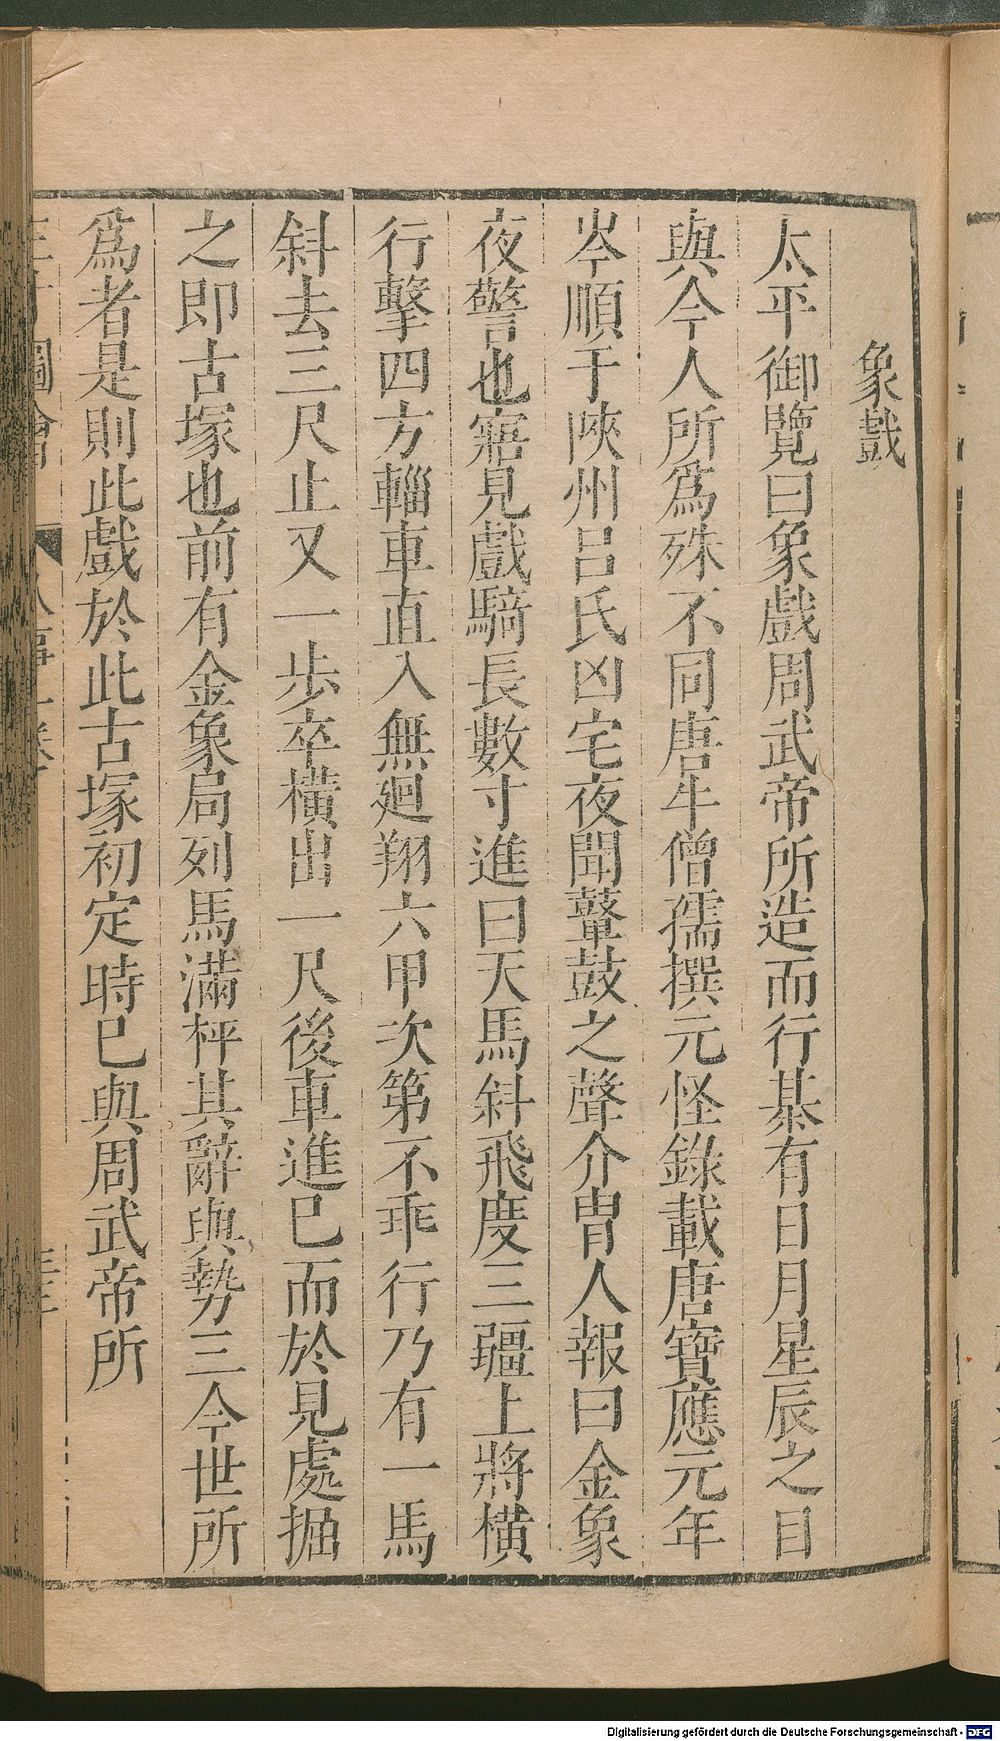 象戲
太平御覽曰象戲周武帝所造而行棊有日月星辰之目
與今人所爲殊不同唐牛僧孺撰元怪錄載唐寶應元年
岑順于陜州呂氏凶宅夜聞鼙鼓之聲介冑人報曰金象
夜警也寤見戲騎長數寸進曰天馬斜飛度三疆上將橫
行擊四方輜車直入無廻翔六甲次第不乖行乃有一馬
斜去三尺止又一步卒橫出一尺後車進已而於見處掘
之卽古塚也前有金象局列馬滿枰其辭與勢三今世所
爲者是則此戲於此古塚初定時已與周武帝所
圖會
Digitalisierung gefördert durch die Deutsche Forschungsgemeinschaft - DFG